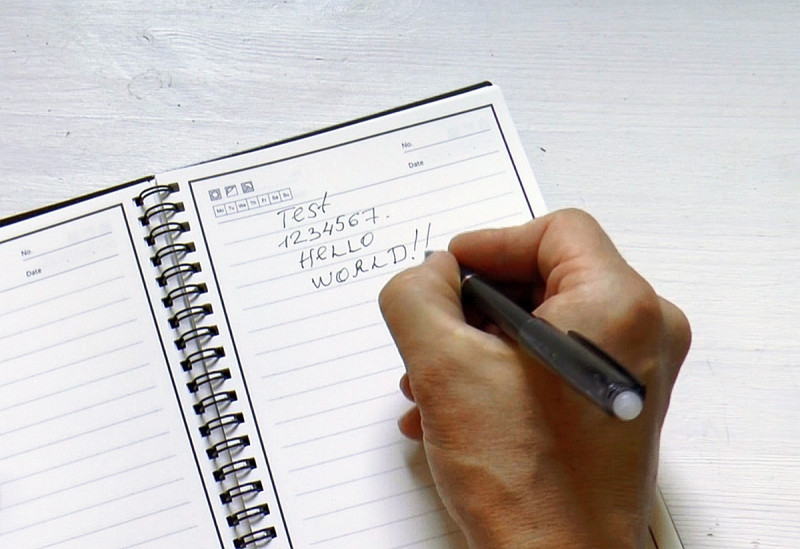 No.
Date
No.
Date
Mo Tu We Th Fr Sa Su
Test
1234567.
HELLO
WORLD!!